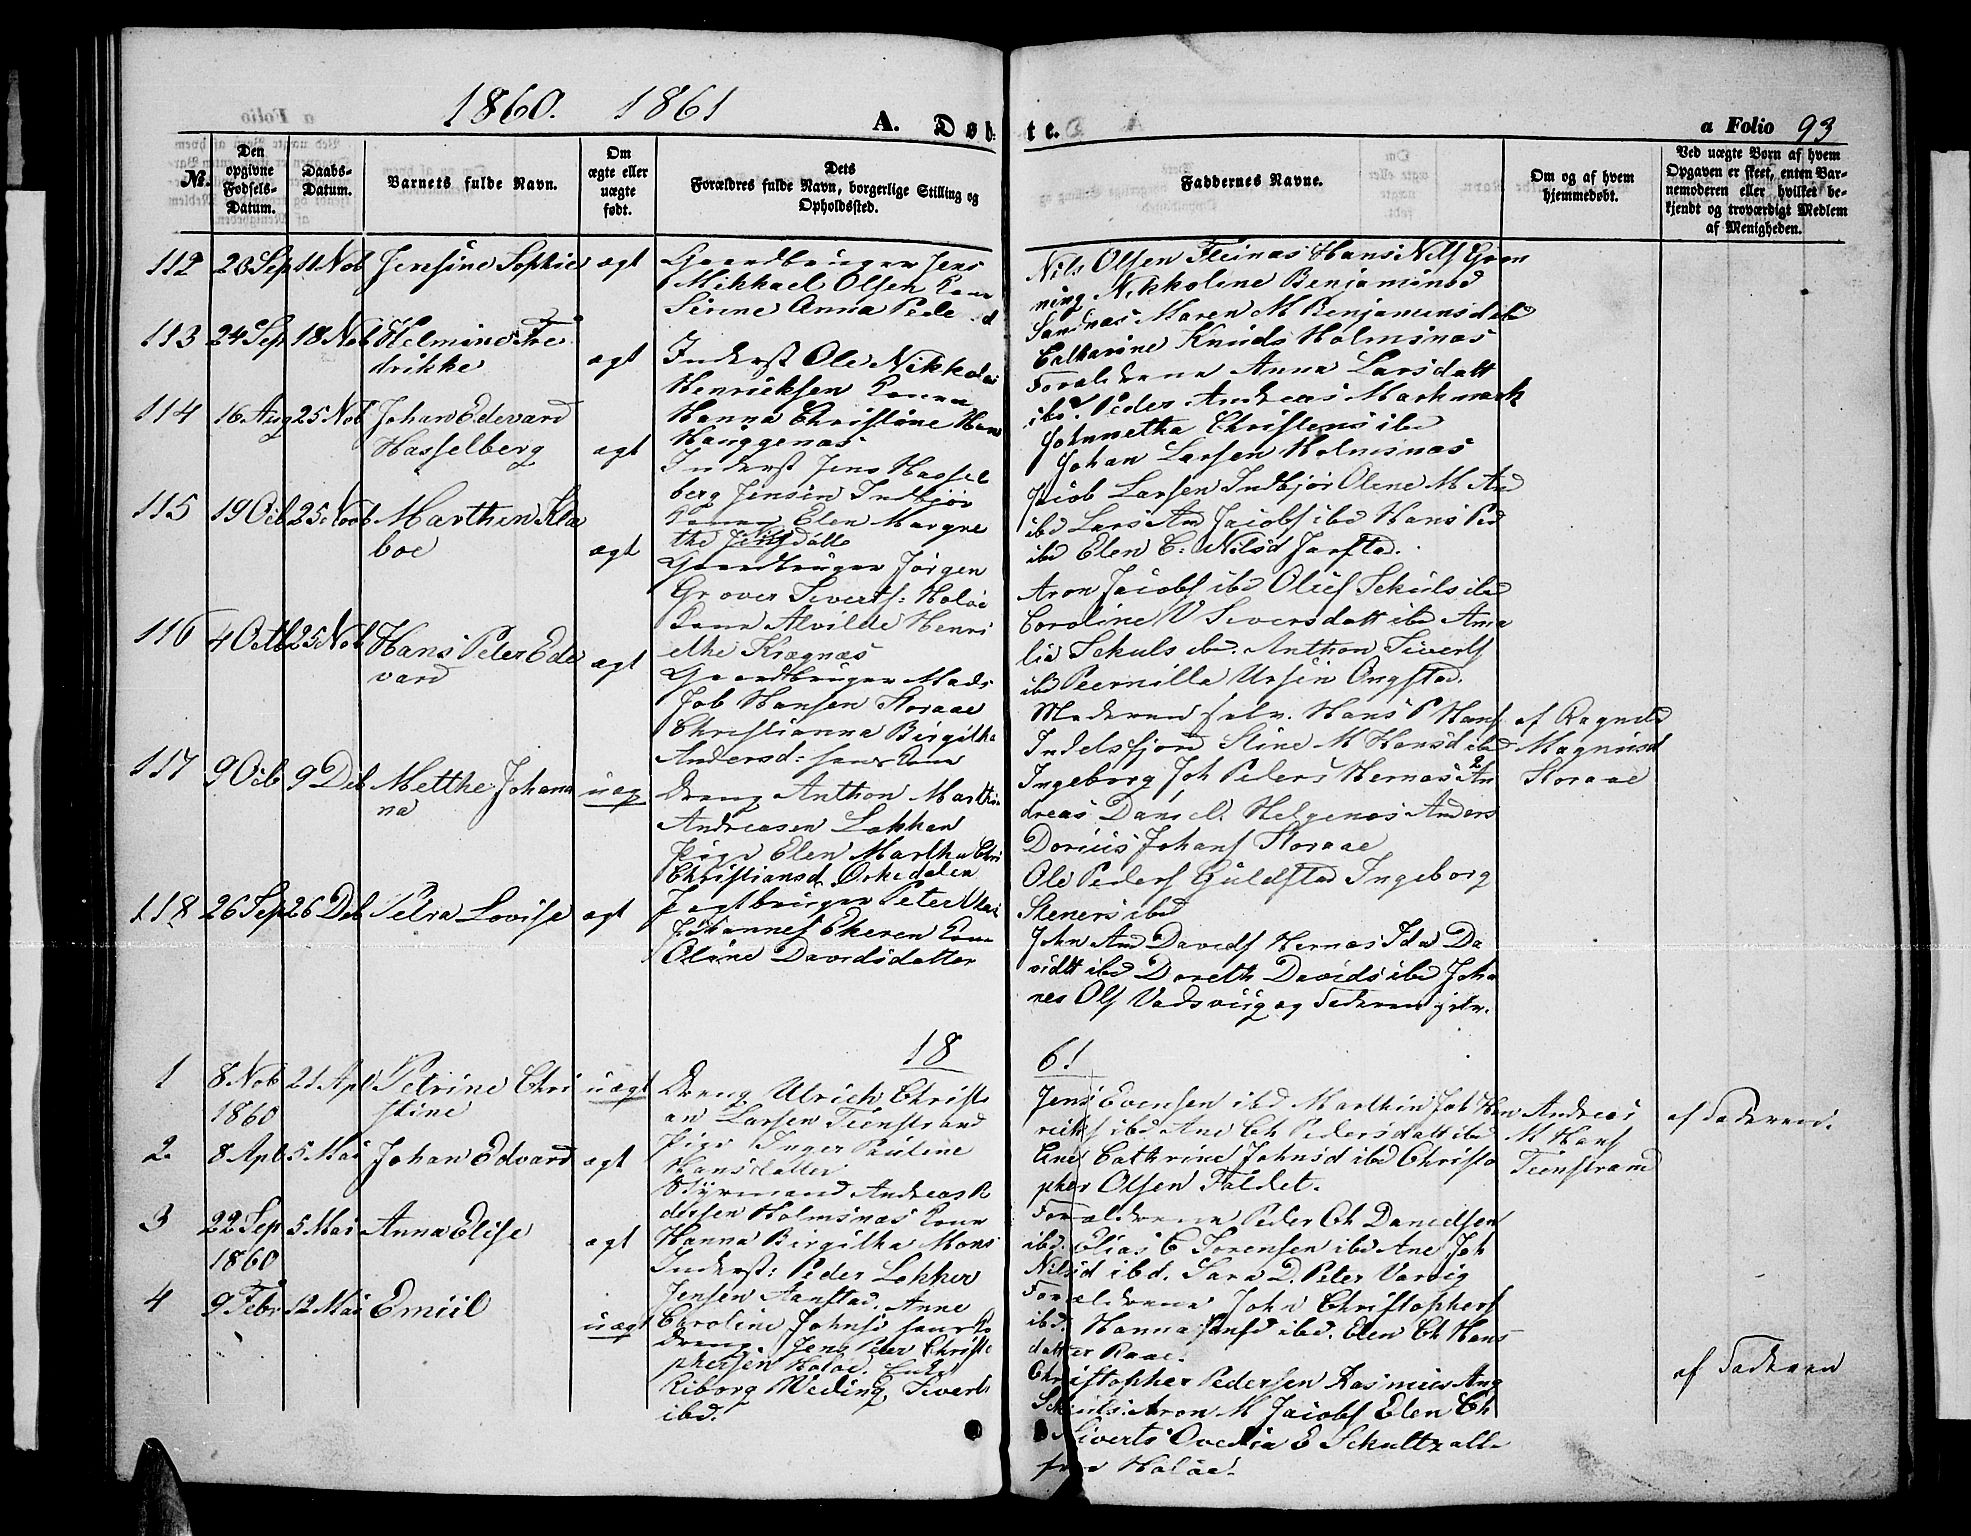 1860. 1861
A. Døbte.
a Folio 93
No.
Den opgivne Fødsels-Datum.
Daabs-Datum.
Barnets fulde Navn.
Om ægte eller uægte født.
Dets Forældres fulde Navn, borgerlige Stilling og Opholdssted.
Faddernes Navne.
Om og af hvem hjemmedøbt.
Ved uægte Børn af hvem Opgaven er skeet, enten Barnemoderen eller hvilket bekjendt og troværdigt Medlem af Menigheden.
112 28 Sep 11 Nob Jensine Sophie ægt
Gaardbruger Jens
Mikkael Olsen Kone
Serine Anna Peders d
Nils Olsen Fleinæs Hans Nils Grøn
ning Nikkoline Benjaminsd
Sandnæs Maren M Benjaminsd ibd
Catharine Knuds Holmsnæs
113 24 Sep 18 Nob Helmine Fre
drikke ægt
Inderst Ole Nikkolai
Henriksen Konen
Hanna Christine Hans
Hauggenæs
Forældrene Anna Larsdatt
ibd. Peder Andreas Markmark
Johnnetha Christens ibd
Johan Larsen Holmsnæs
114 16 Aug 25 Nob Johan Edevard
Hasselberg ægt
Inderst Jens Hassel
berg Jensen Indbjør
Konen Elen Margre
the Jensdatte
Jacob Larsen Indbjør Olene M And
ibd Lars And Jacobs ibd Hans Ped
ibd Elen C: Nilsd Jørstad.
115 19 Octb 25 Nob Marthin Kla
boe ægt
Gaardbruger Jørgen
Grover Siverts: Haløe
Kone Alvilde Henri
ethe Kragnæs
Aron Jacobs ibd Oluf Schuls ibd
Caroline V Siversdatt ibd Ama
lia Schuls ibd. Anthon Siverts
ibd Peernilla Ursin Ongstad.
116 4 Octb 25 Nob Hans Peter Ede
vard ægt
Gaardbruger Mads
Job Hansen Storaae
Christianna Birgitha
Andersd: hans Kone
Moderen selv. Hans P Hans
Indelsfjord Stine M Hansd ibd
Ingeborg Joh Peders Hernæs An
dreas Daniel. Helgenæs Anders
Dorius Johans Storaae
af Ragnild
Magnusd
Storaae
117 9 Octb 9 Deb Metthe Johan
na uæg
Dreng Anthon Marthin
Andreasen Løkken
Pige Elen Martha Chri
Christiansd Orkedalen
Ole Peders Guldstad Ingeborg
Steners ibd
118 26 Sep 26 Deb Petra Lovise ægt
Jagtbruger Peter
Johannes Ekeren Kone
Oline Davidsdatter
John And Davids Hernæs Ida Da
vidtt ibd Doreth Davids ibd Joha
nes Ols Vadsviig og Faderen selv.
1861
1 8 Nob 1860 21 Apl Petrine Chri
stine uægt
Dreng Ulrich Christi
an Larsen Teenstrand
Pige Inger Pauline
Hansdatter
Jens Evensen ibd Marthin Joh Hen
riks ibd Ane Ch Pedersdatt ibd
Ane Cathrine Johnsd ibd Christo
pher Olsen Faldet.
Andreas
M Hans
Teenstrand
af Faderen.
2. 8 Apl 5 Mai Johan Edvard ægt
Styrmand Andreas P
dersen Holmsnæs Kone
Hanna Birgitha Mons
Forældrene Peder Ch Danielsen
ibd. Elias C Sørensen ibd Ane Joh
Nilsd ibd. Sara D. Peter Varvig
3 22 Sep 1860 5 Mai Anna Elise ægt
Inderst: Peder Løkker
Jensen Aanstad. Anne
Caroline Johnsd hans Ko
Forældrene John Christophers
ibd. Hanna Jensd ibd. Elen Ch Hans
datter Raae.
4 9 Febr 12 Mai Emiil uægt
Dreng. Jens Peer Christo
phersen Haløe. Enke
Riborg Weding Siverts
ibd.
Christopher Pedersen Rasmus Aug
Schuls. Aron M Jacobs Elen Ch
Siverts Ovedia E Schultz alle
fra Haløe.
af Faderen